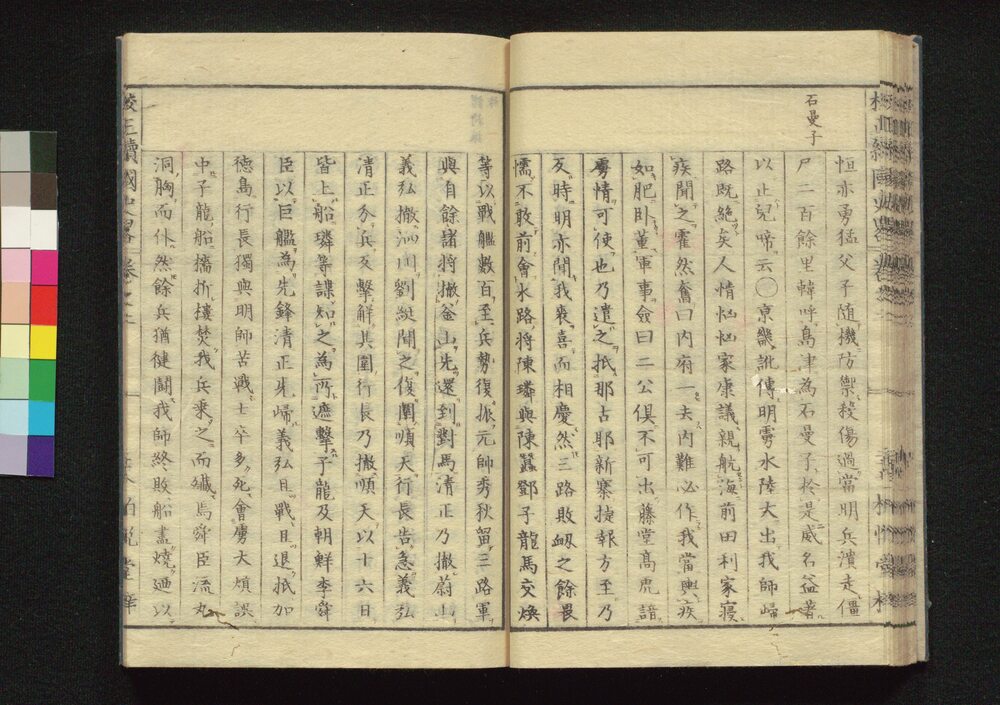 石曼子
恒亦勇猛父子随機防禦殺傷過當明兵潰走僵
尸二百餘里韓呼島津為石曼子於是威名益著
以止兒啼云〇京畿訛傳明虜水陸大出我師歸
路既絶矣人情恟恟家康議親航海前田利家寝
疾聞之霍然奮曰内府一去内難必作我當輿疾
如肥卧董軍事僉曰二公俱不可出藤堂高虎諳
虜情可使也乃遣之抵那古耶新寨捷報方至乃
反時明亦聞我喪喜而相慶然三路敗衂之餘畏
懦不敢前會水路將陳璘與陳蠶鄧子龍馬文煥
等以戰艦數百至兵勢復振元帥秀秋留三路軍
與自餘諸將撤釜山先還到對馬清正乃撤蔚山
義弘撤泗川劉綎聞之復圍順天行長告急義弘
清正分兵反擊解其圍行長乃撤順天以十六日
皆上船璘等諜知之為所遮擊子龍及朝鮮李舜
臣以巨艦為先鋒清正先歸義弘且戰且退抵加
德島行長獨與明師苦戰士卒多死會虜大煩誤
中子龍船檣折樓焚我兵乘之而殲焉舜臣流丸
洞胸而仆然餘兵猶健鬪我師終敗船盡燒廼以
校正續國史畧巻之二